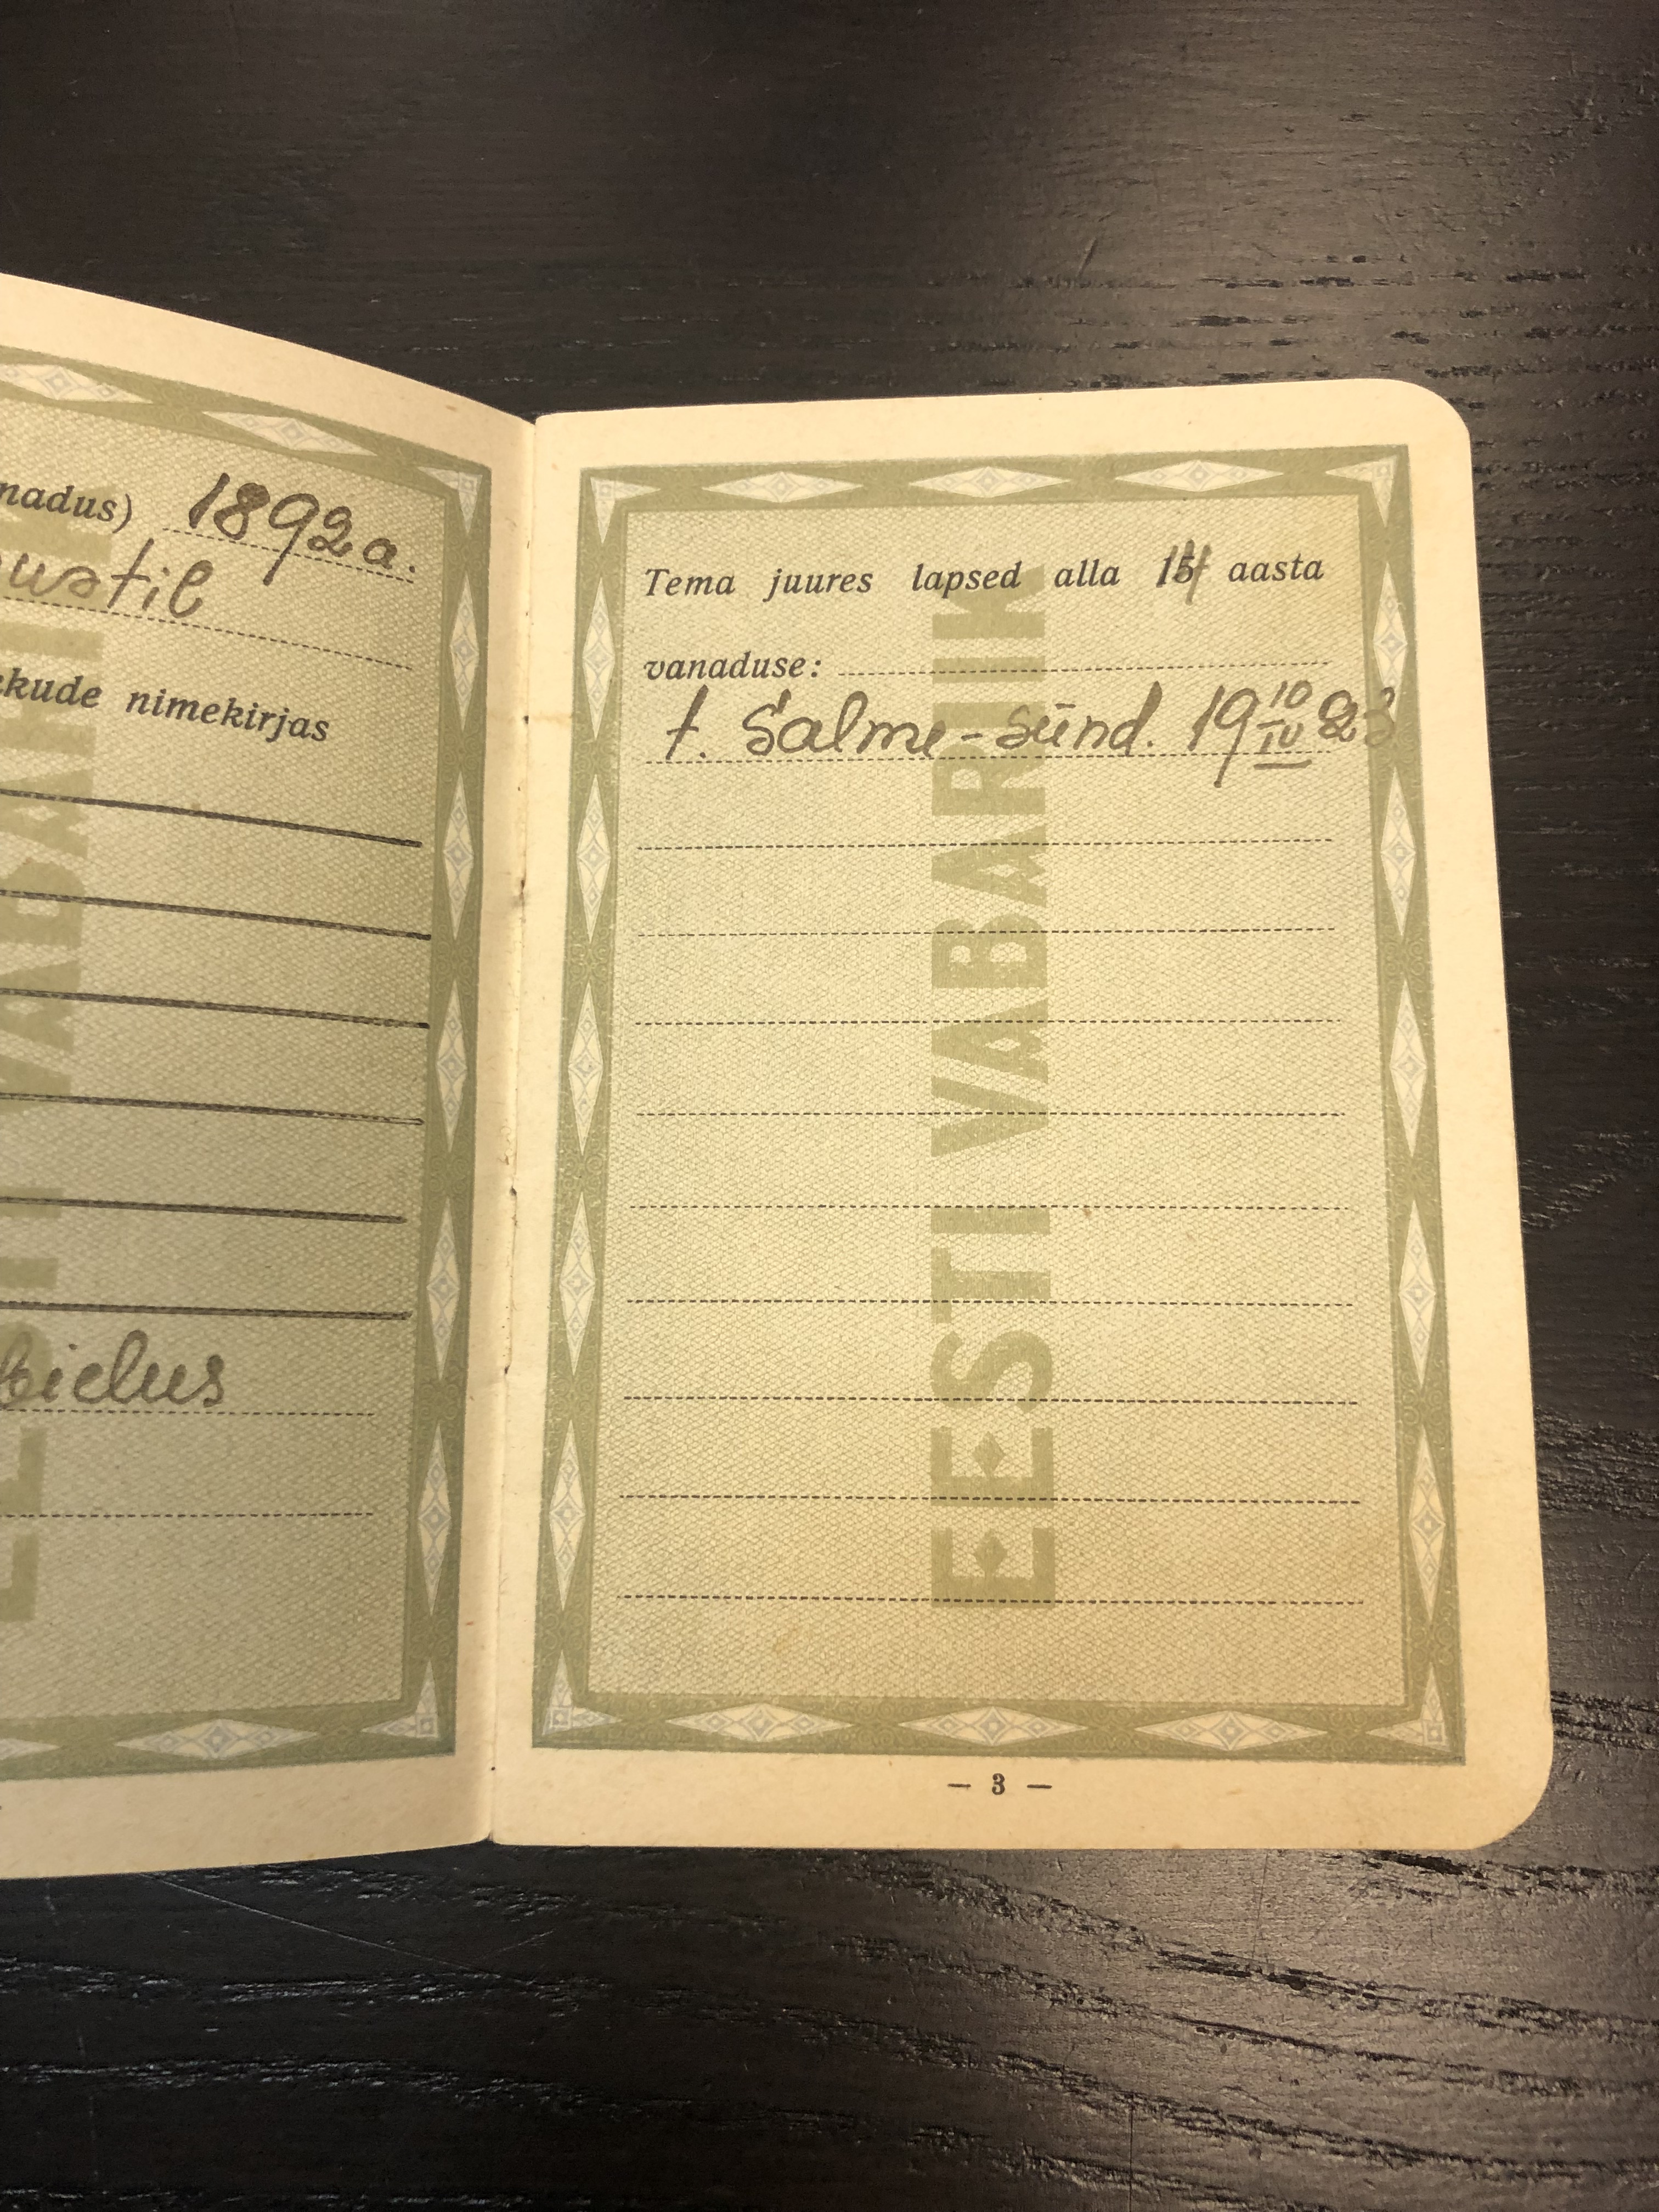 nadus) 1892 a.
ustil
kude nimekirjas
bielus
EESTI VABARIIK
Tema juures lapsed alla aasta
vanaduse:
t. Salme - sünd. 19 10/IV 23
EESTI VABARIIK
— 3 —